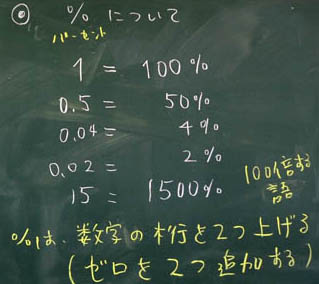 ◎ % について
パーセント
1 = 100%
0.5 = 50%
0.04 = 4%
0.02 = 2%
15 = 1500%
100倍する
語
%は、数字の桁を2つ上げる
(ゼロを2つ追加する)